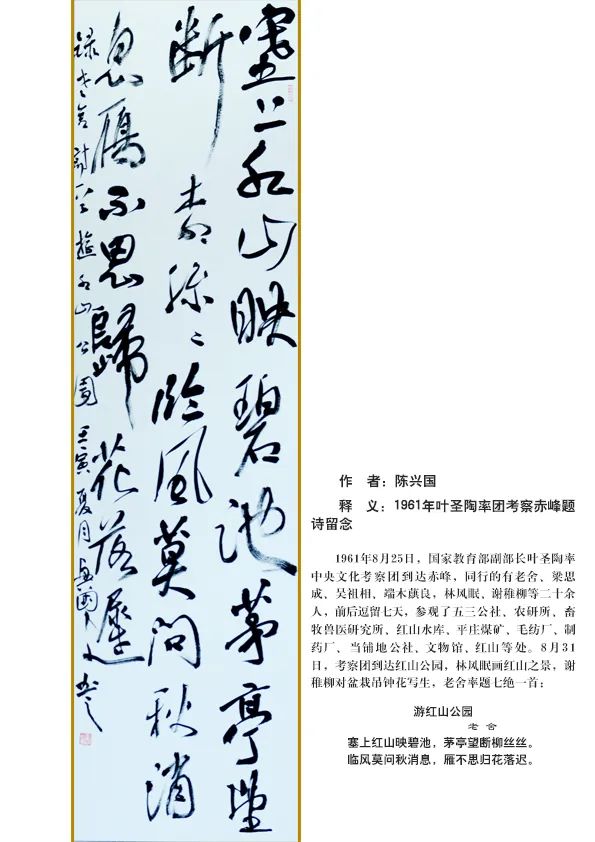 塞上红山映碧池茅亭望
断柳丝丝临风莫问秋消
息雁不思歸花落遲
录老舍诗 游红山公园 壬寅夏月
作　者：陈兴国
释　义：1961年叶圣陶率团考察赤峰题
诗留念
1961年8月25日，国家教育部副部长叶圣陶率
中央文化考察团到达赤峰，同行的有老舍、梁思
成、吴祖相、端木蕻良，林风眠、谢稚柳等二十余
人，前后逗留七天，参观了五三公社、农研所、畜
牧兽医研究所、红山水库、平庄煤矿、毛纺厂、制
药厂、当铺地公社、文物馆、红山等处。8月31
日，考察团到达红山公园，林风眠画红山之景，谢
稚柳对盆栽吊钟花写生，老舍率题七绝一首：
游红山公园
老 舍
塞上红山映碧池，茅亭望断柳丝丝。
临风莫问秋消息，雁不思归花落迟。